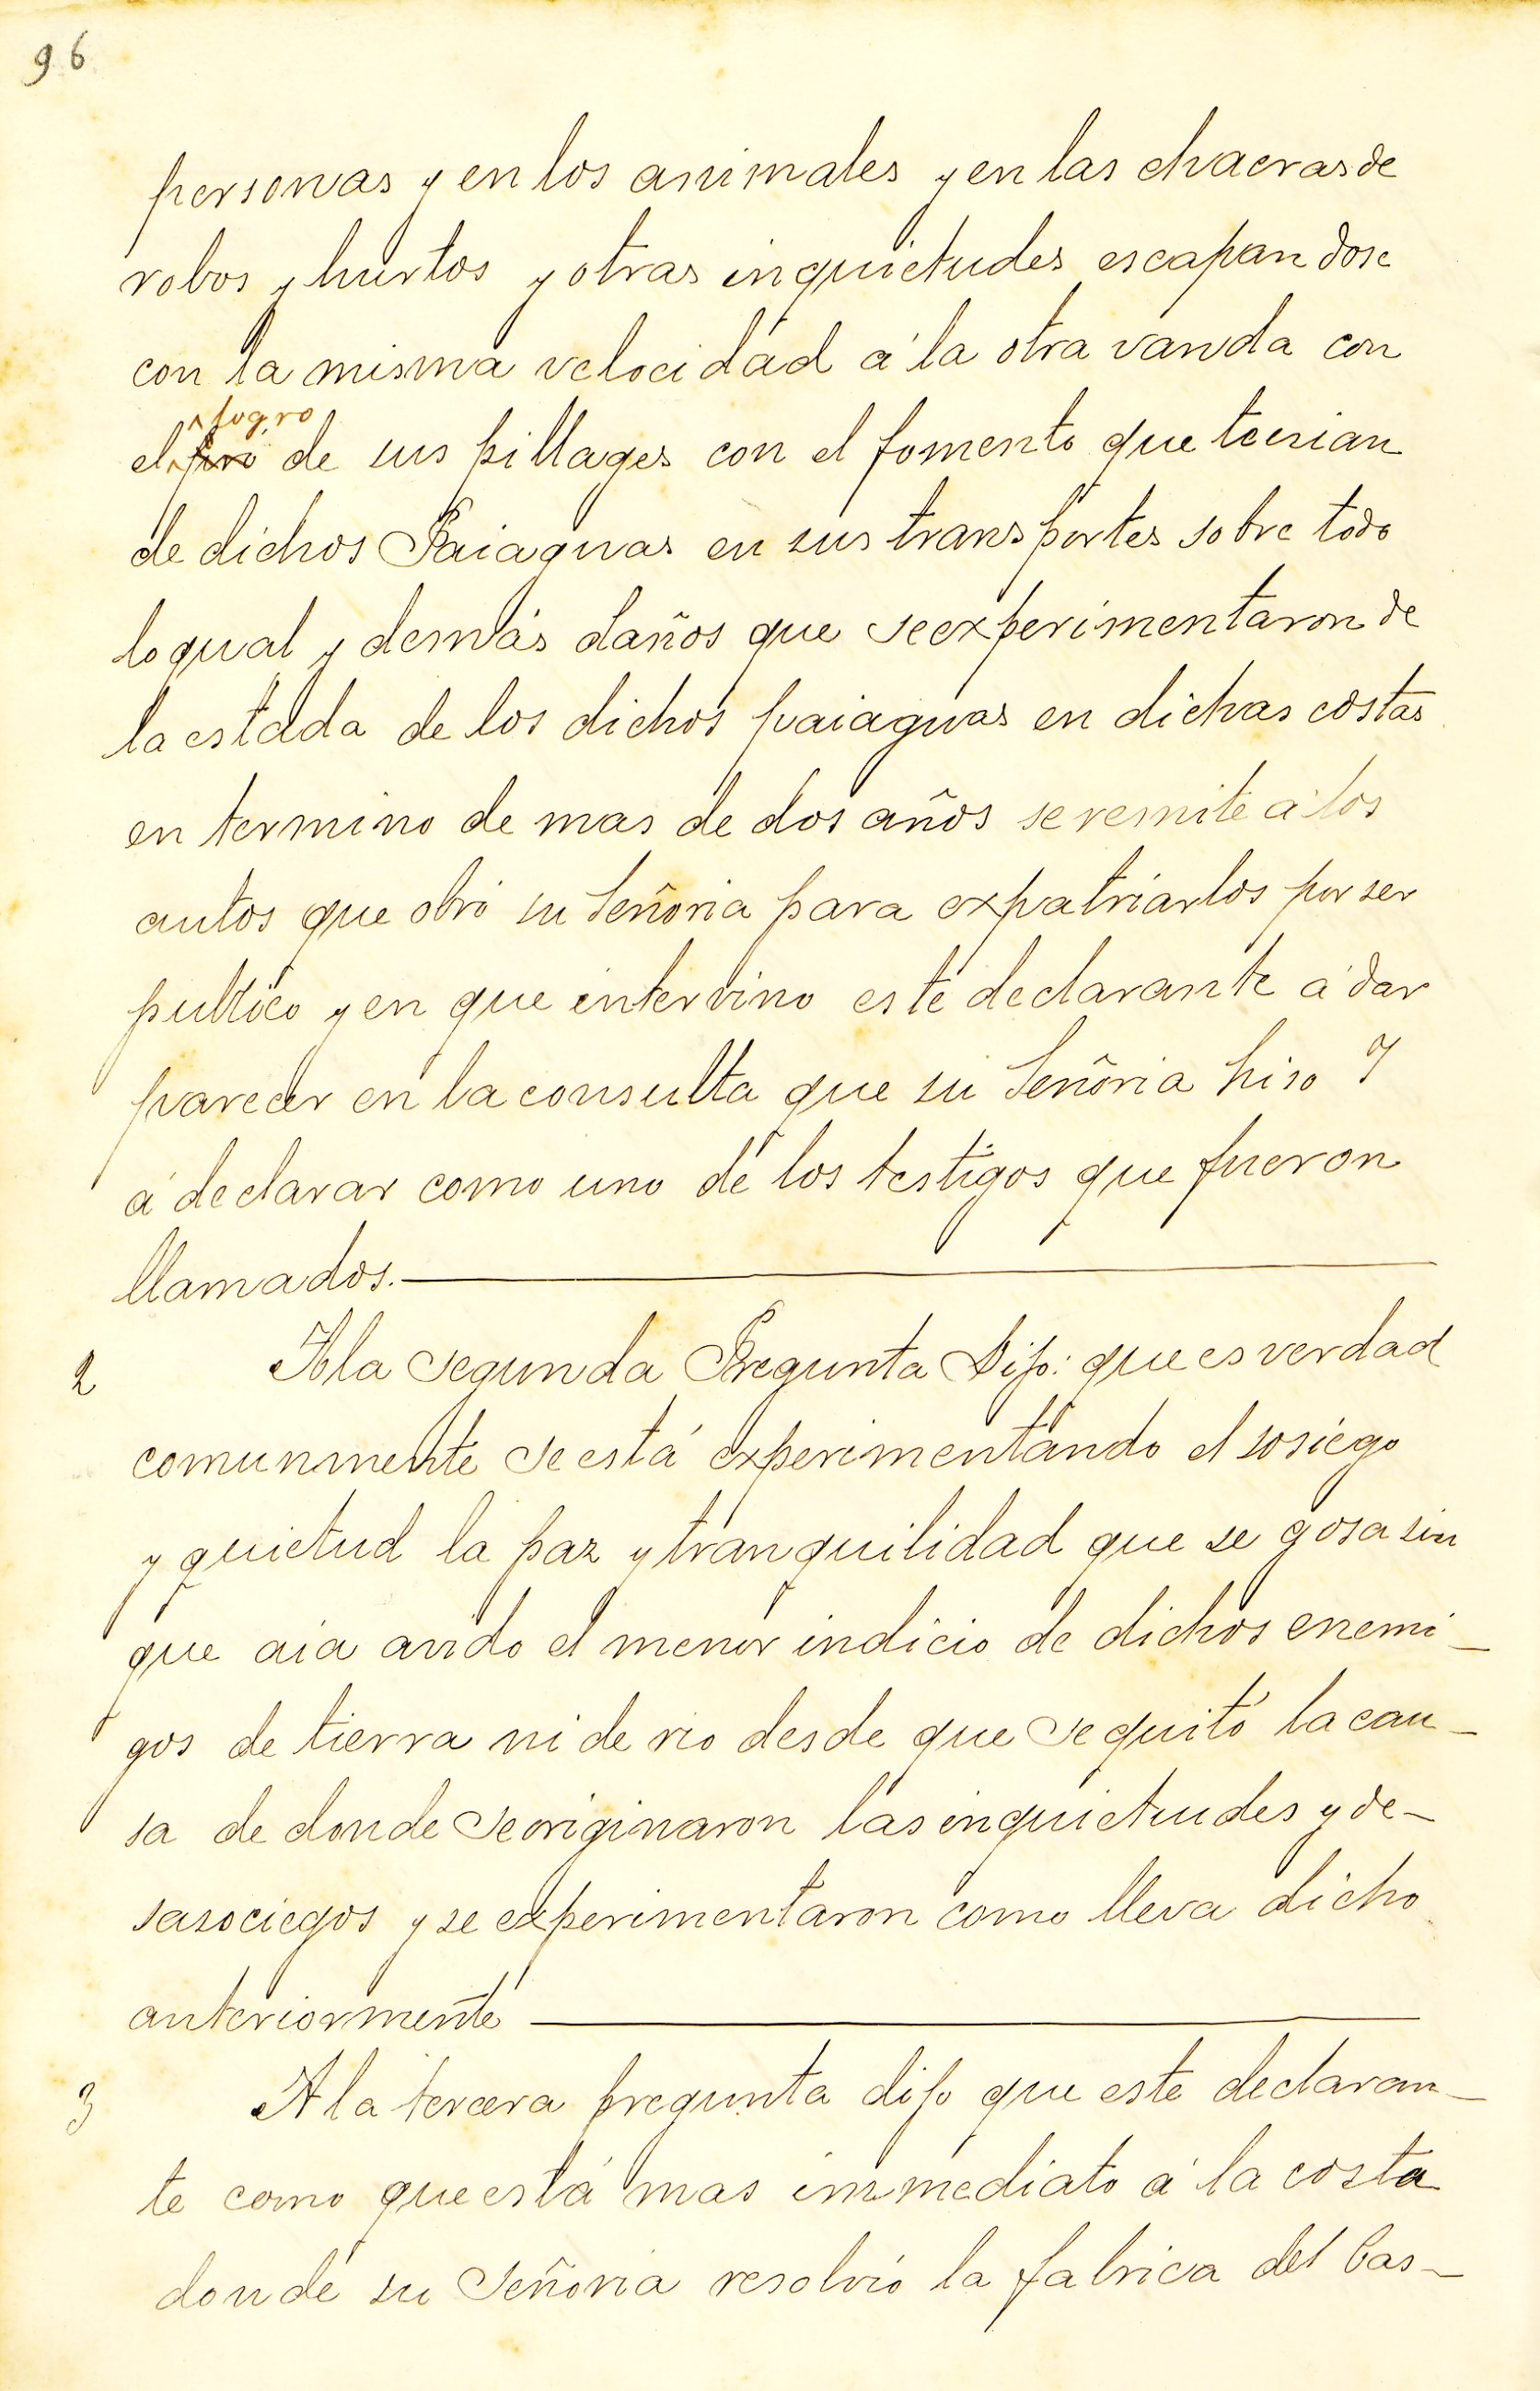 96
personas y en los animales y en las chacras de
robos y hurtos y otras inquietudes escapandose
con la misma velocidad á la otra vanda con
logro
el de sus pillages con el fomento que tenian
de dichos Paiaguas en sus transportes sobre todo
lo qual y demás daños que se experimentaron de
la estada de los dichos paiaguas en dichas costas
en termino de mas de dos años se remite á los
autos que obró su Señoria para expatriarlos por ser
publico y en que intervino este declarante á dar
parecer en la consulta que su Señoria hiso Y
á declarar como uno de los testigos que fueron
llamados.
2 A la segunda Pregunta Dijo: que es verdad
comunmente se está experimentando el sosiego
y quietud la paz y tranquilidad que se gosa sin
que aia avido el menor indicio de dichos enemi-
gos de tierra ni de rio desde que se quitó la cau-
sa de donde se originaron las inquietudes y de-
sasociegos y se experimentaron como lleva dicho
anteriormente
3 A la tercera pregunta dijo que este declaran-
te como que está mas immediato á la costa
donde su Señoria resolvió la fabrica del Cas-